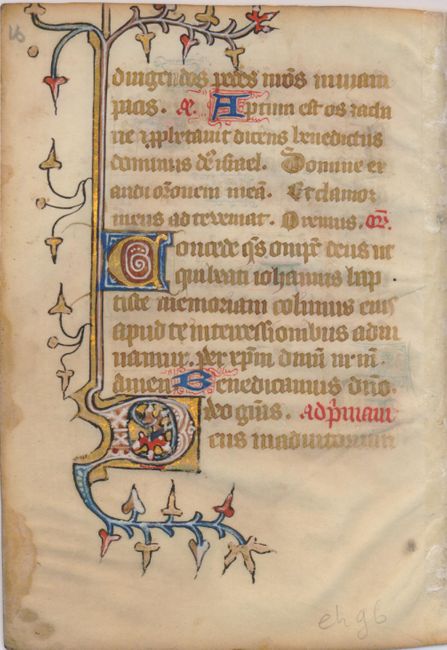 16
dirigendos pedes nr̄os in viam
pacis. A. Aptum est os zacha
rie ⁊ pphetavit dicens benedictus
dominus deꝰ israel. Domine ex
audi or̄onem meā. Et clamor
meus ad te veniat. Oremus. or̄.
Concede q̄s omp̄c deus ut
qui beati iohannis bap
tiste memoriam colimus eius
apud te intercessionibus adiu
vamur. Per xp̄m dn̄m nr̄m.
Amen Benedicamus dn̄o.
deo gr̄as. ad p̄mam
Deus in adiutorium
eh 96